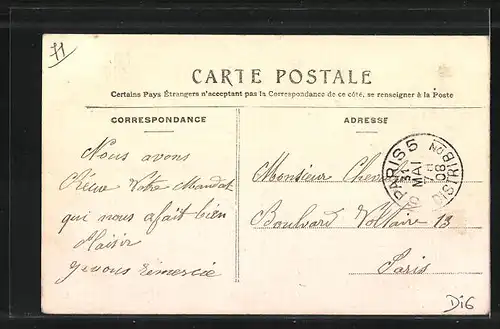 11
CARTE POSTALE
Certains Pays Étrangers n'acceptant pas la Correspondance de ce côté, se renseigner à la Poste
CORRESPONDANCE
ADRESSE
Nous avons
Réçue Votre Mandat
qui nous a fait bien
Plaisir
je vous remercie
Monsieur
Boulvard Voltaire 13
Paris
PARIS 5
31
MAI
08
DISTRIBON
DiG